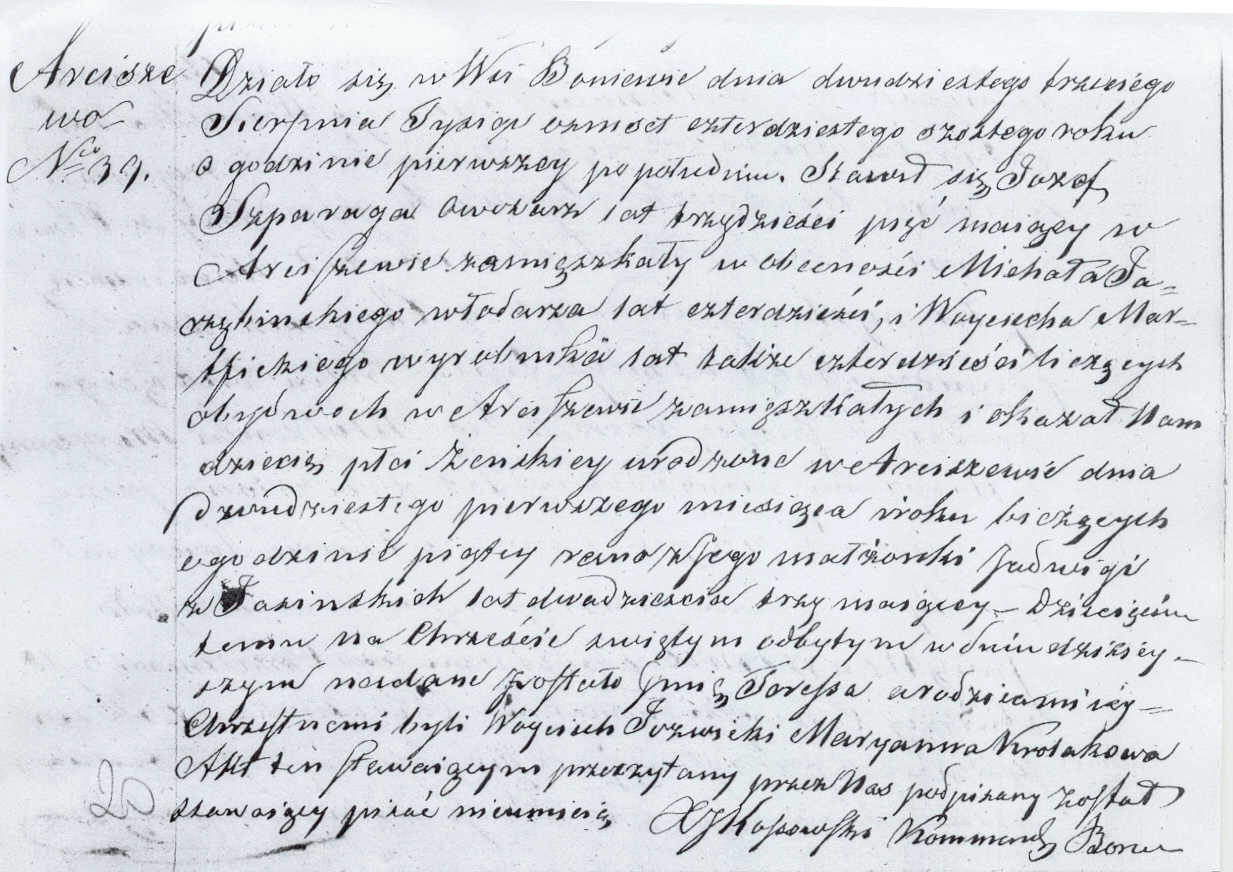 Arcisze
wo
Nro 39.
Działo się w Wsi Boniewie dnia dwudziestego trzeciego
Sierpnia Tysiąc osmset czterdziestego szostego roku
o godzinie pierwszey po południu. Stawił się Jozef
Szparaga Owczarz lat trzydzieści pięć maiący w
Arciszewie zamięszkały w obecności Michała Ja=
rzębinskiego włodarza lat czterdzieści, i Woyciecha Mar=
wyrobnika lat także czterdzieści liczących
obydwoch w Arciszewie zamięszkałych i okazał Nam
dziecię płci żeńskiey urodzone w Arciszewie dnia
dwudziestego pierwszego miesiąca i roku bieżących
o godzinie piątey rano z Jego małżonki Jadwigi
z Jasinskich lat dwadzieścia trzy maiący – Dziecięciu
temu na Chrzcście swiętym odbytym w dniu dzisiey –
szym nadane zostało Jmię Teressa a rodzicami iéy =
Chrzestnemi byli Woyciech Jozwicki Maryanna Krolakowa
Akt ten stawaiącym przeczytany przez Nas podpisany został
stawaiący pisać nieumieią XJKossowski Kommend Boniew
20